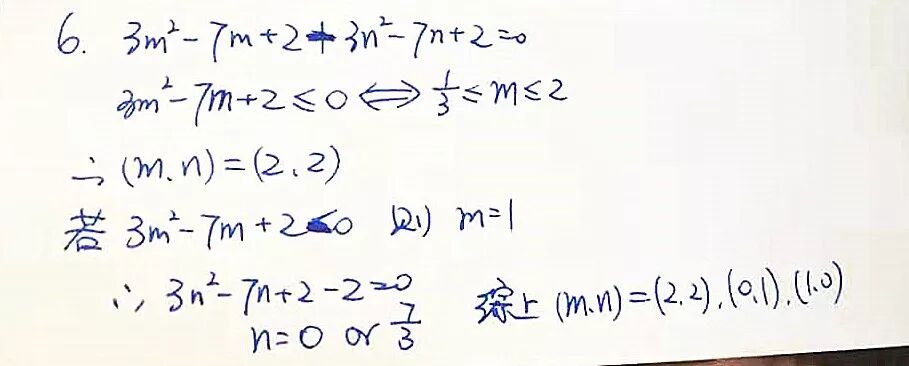 6. 3m²-7m+2+3n²-7n+2=0
3m²-7m+2≤0⟺1/3≤m≤2
∴(m.n)=(2.2)
若 3m²-7m+2<0 则 m=1
∴ 3n²-7n+2-2=0
n=0 or 7/3
综上(m.n)=(2.2),(0.1),(1.0)